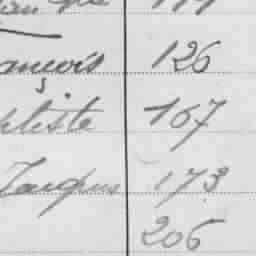 ançois 126
ptiste 167
Jacques 173
206